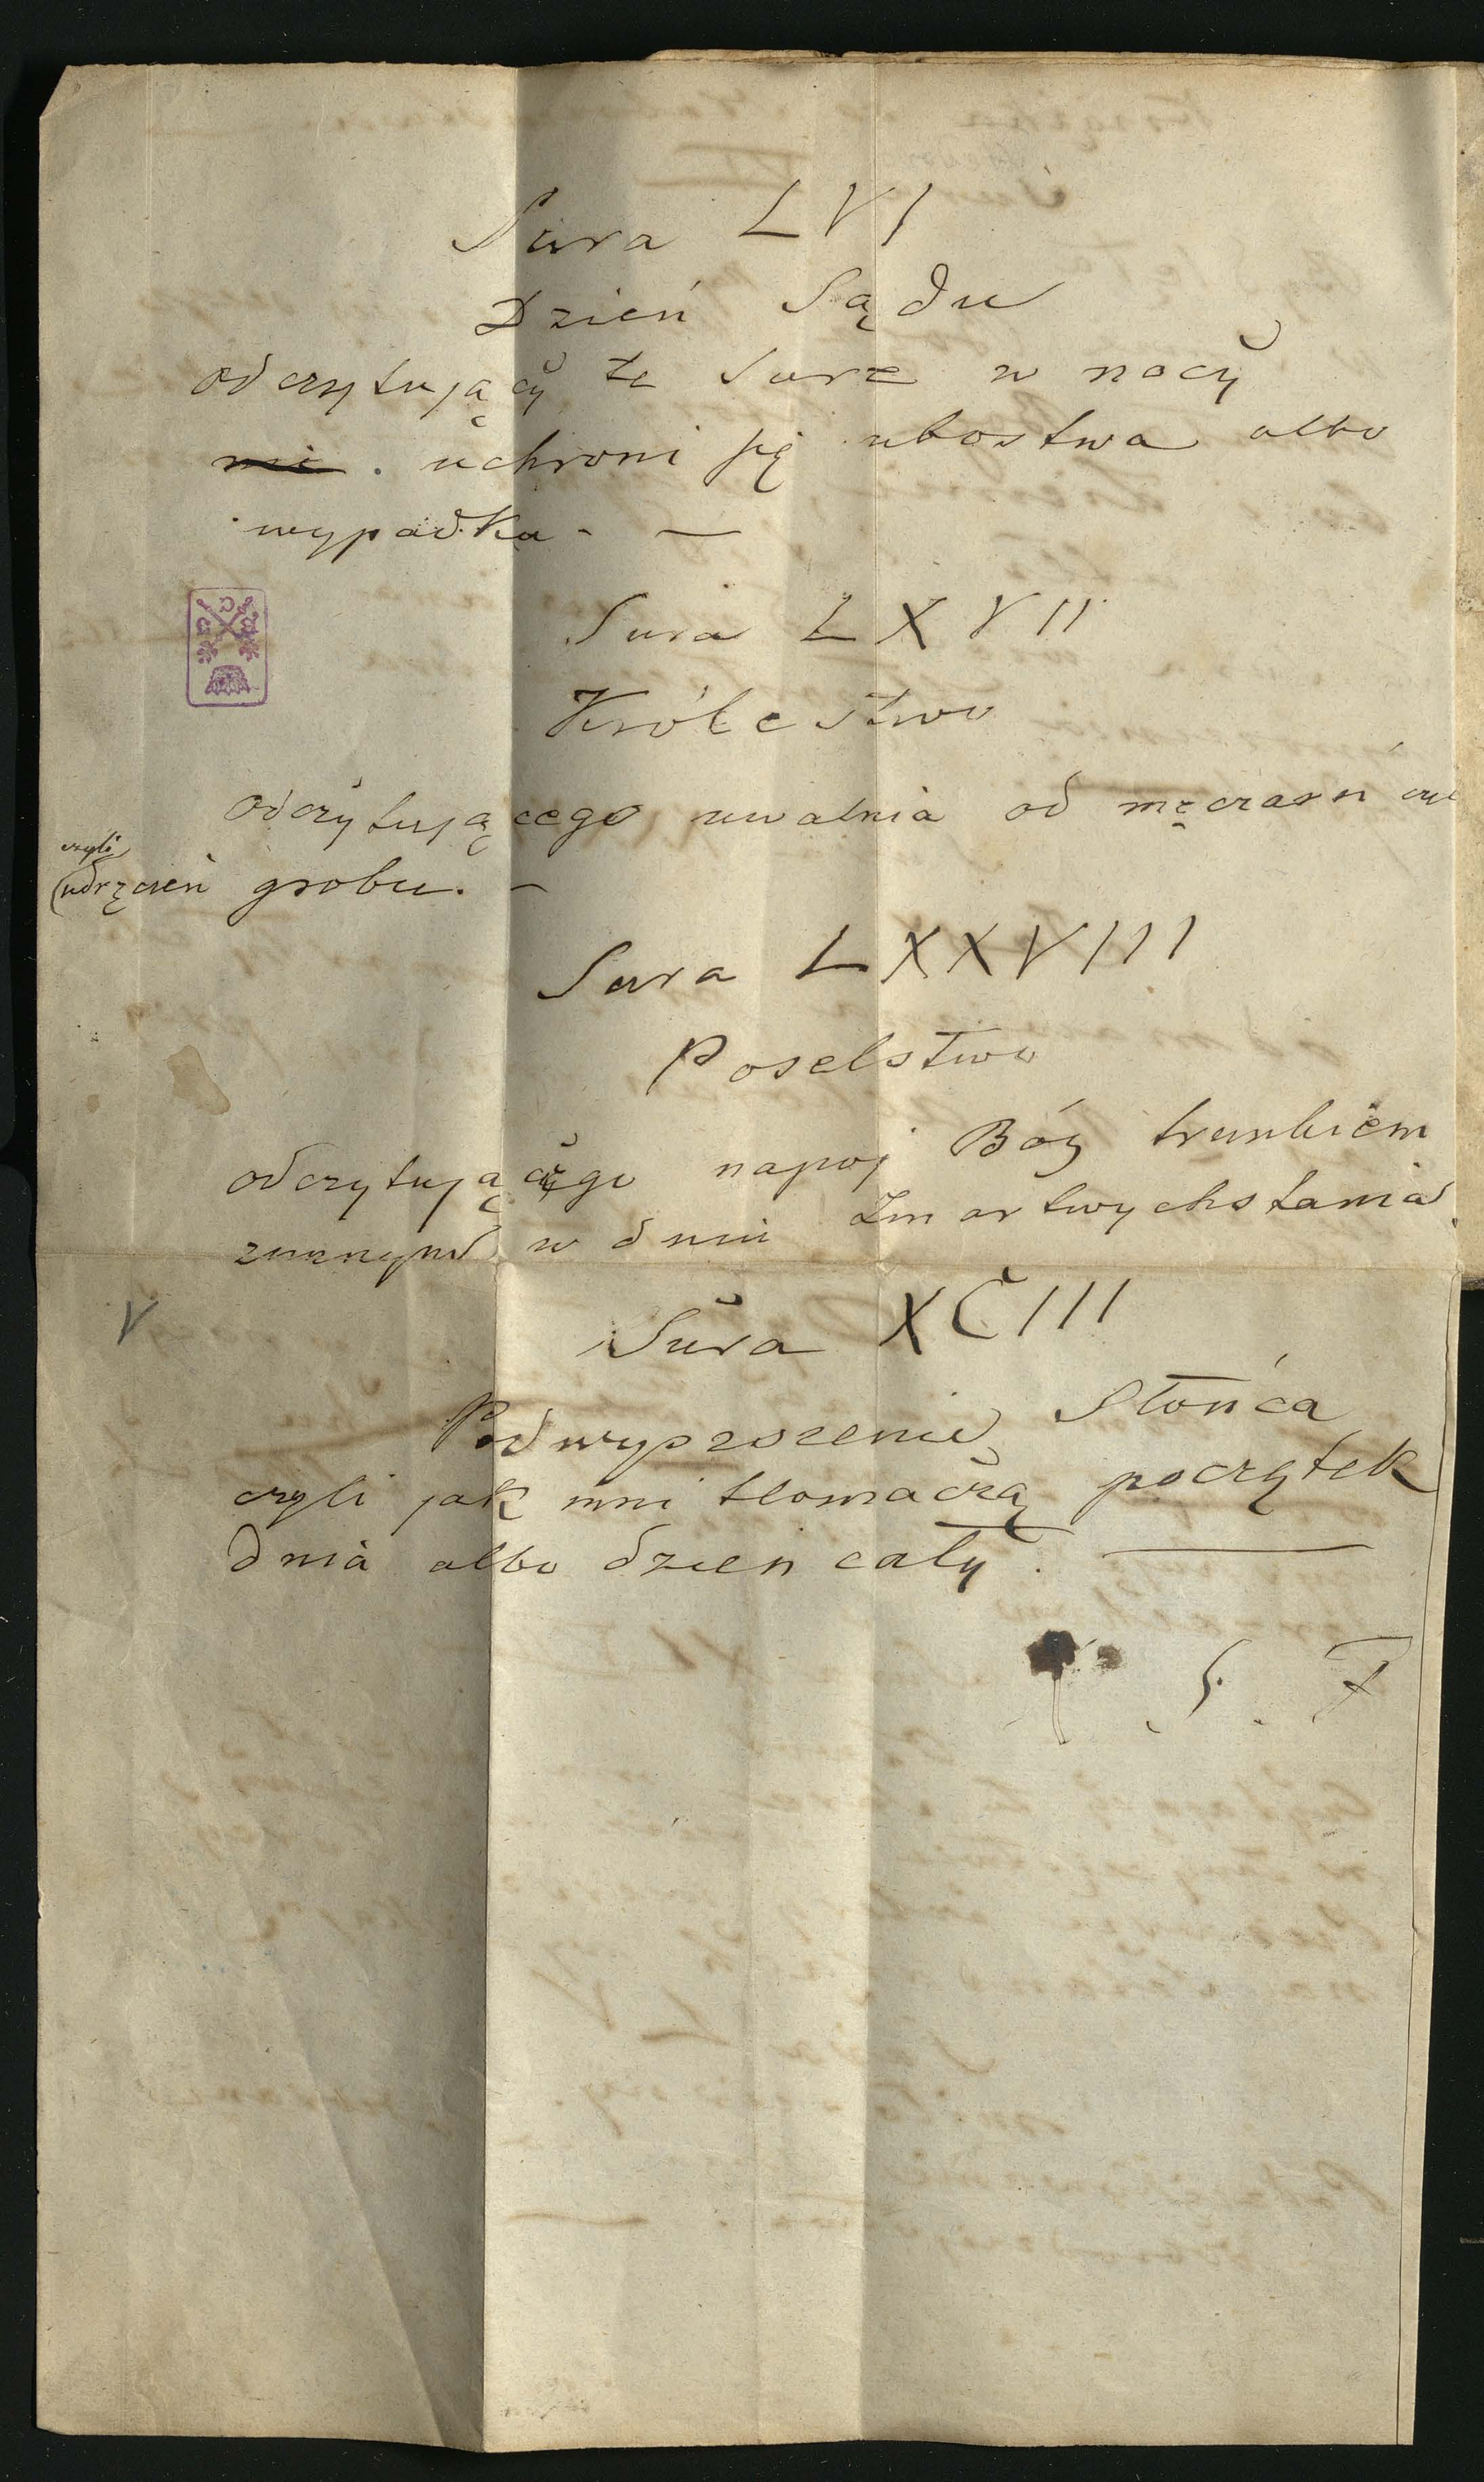 Sura LVI
Dzień Sądu
odczytujący te Surę w nocy
nie . uchroni się ubostwa albo
wypadku - —
Sura LXVII
Królestwo
odczytującego uwalnia od męczarń czyl
czyli
(udręczeń grobu. —
Sura LXXVIII
Poselstwo
odczytującego napoj Bóg trunkiem
zimnym w dniu Zmartwychstania
V
Sura XCIII
Podwyższenie Słońca
czyli jak inni tłomaczą początek
dnia albo dzien cały. —
S. F